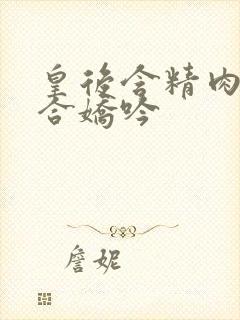 皇後含精肉
合嬌吟
詹妮